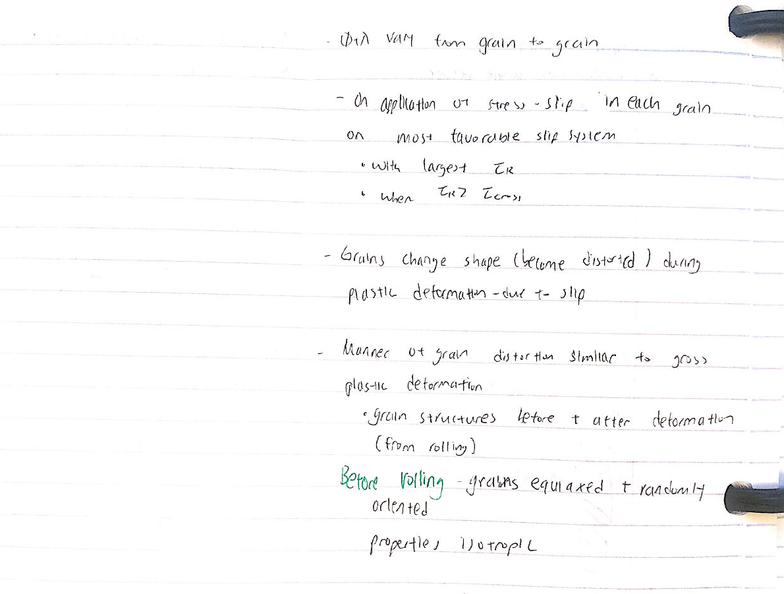 - Φ+λ vary from grain to grain
- On application of stress - slip in each grain
on most favorable slip system
• with largest τR
• when τR > τcrss
- Grains change shape (become distorted) during
plastic deformation - due to slip
- Manner of grain distortion similiar to gross
plastic deformation
• grain structures before + after deformation
(from rolling)
Before rolling - grains equiaxed + randomly
oriented
properties isotropic